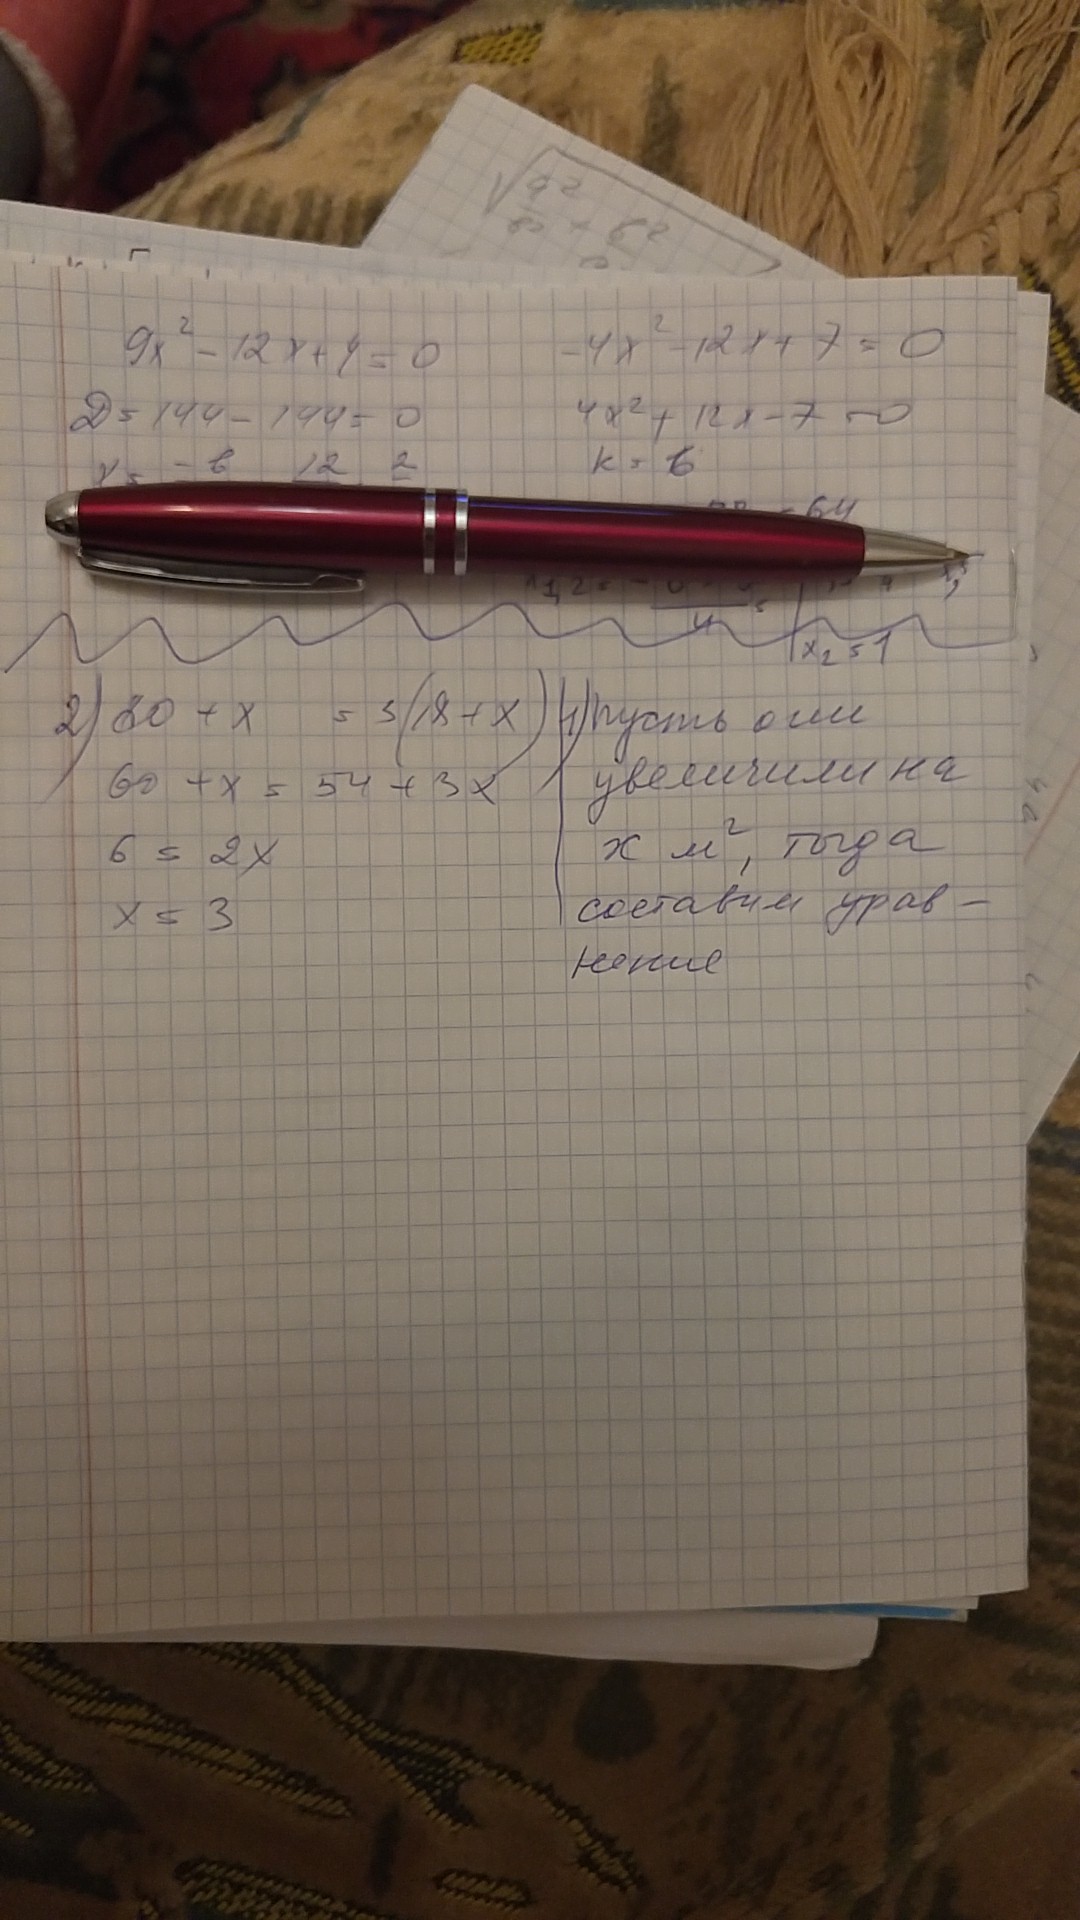 9x² - 12x + 4 = 0
D = 144 - 144 = 0
x = -b 12 2
-4x² - 12x + 7 = 0
4x² + 12x - 7 = 0
k = 6
= 64
x₂ = 1
2) 60 + x = 3(18 + x)
60 + x = 54 + 3x
6 = 2x
x = 3
1) Пусть они
увеличили на
x м², тогда
составим урав -
нение